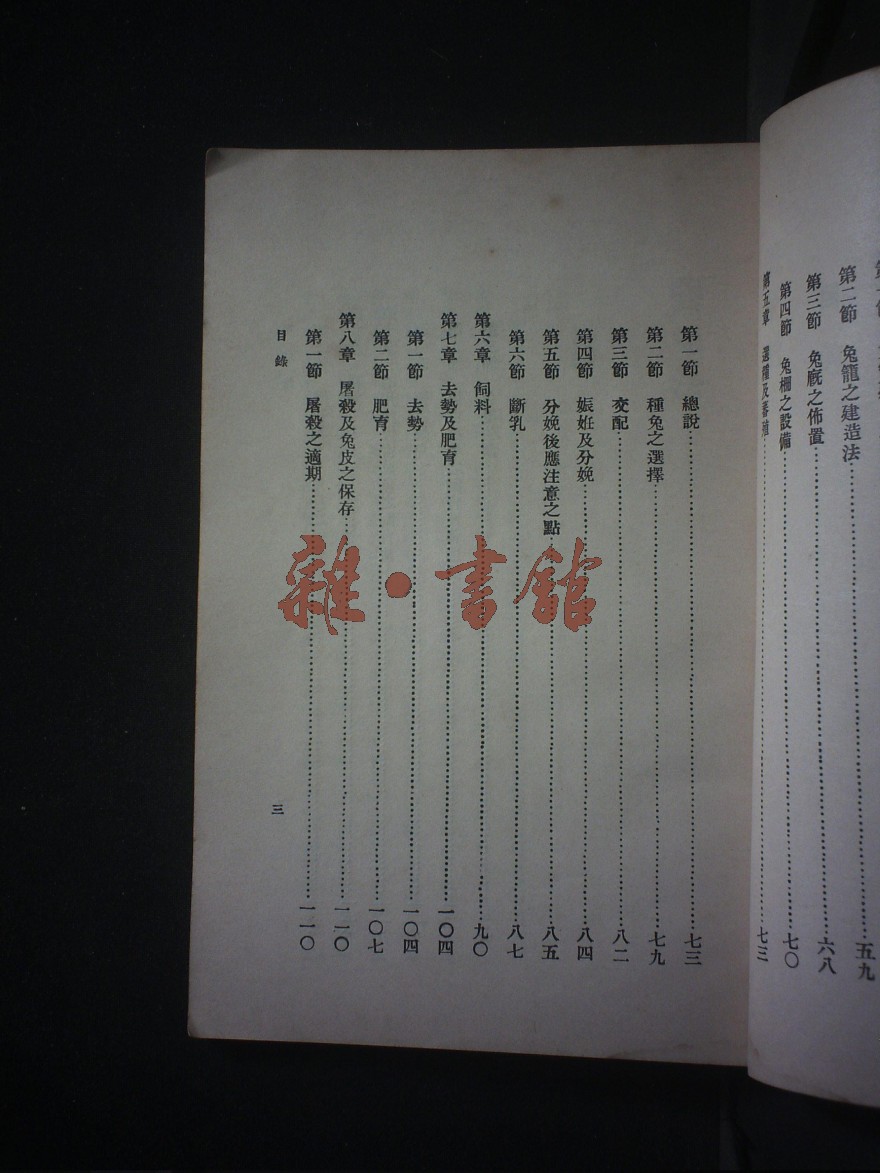 第二節　兔籠之建造法……五九
第三節　兔廐之佈置……六八
第四節　兔柵之設備……七〇
第五章　選種及蕃殖……七三
第一節　總說……七三
第二節　種兔之選擇……七九
第三節　交配……八二
第四節　娠妊及分娩……八四
第五節　分娩後應注意之點……八五
第六節　斷乳……八七
第六章　飼料……九〇
第七章　去勢及肥育……一〇四
第一節　去勢……一〇四
第二節　肥育……一〇七
第八章　屠殺及兔皮之保存……一一〇
第一節　屠殺之適期……一一〇
目錄
三
雜・書館